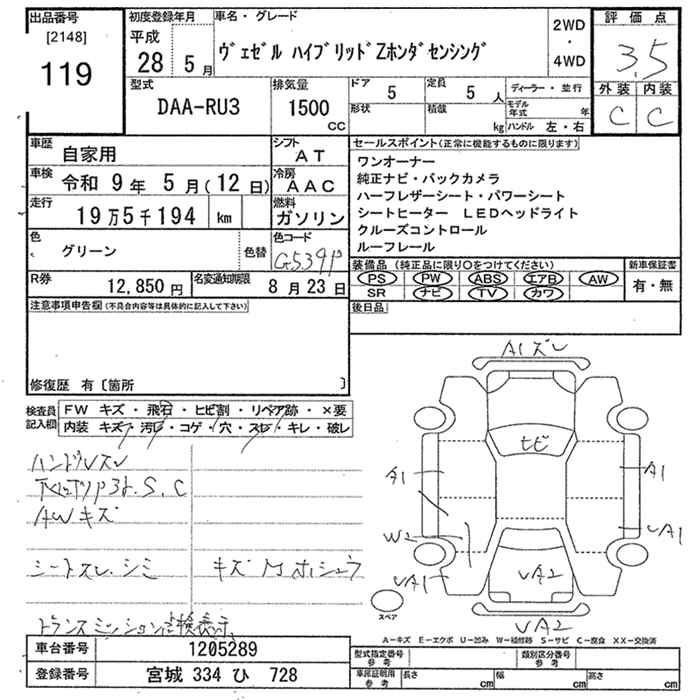 出品番号
[2148]
119
初度登録年月
平成
28 5月
車名・グレード
ヴェゼル ハイブリッドZホンダセンシング
2WD
・
4WD
評価点
3.5
外装 内装
C C
型式
DAA-RU3
排気量
1500
cc
ドア
5
定員
5 人
ディーラー・並行
形状
積載
kg
モデル年式 年
ハンドル 左・右
車歴
自家用
シフト
AT
車検
令和 9年 5月(12日)
冷房
AAC
走行
19万5千194 km
燃料
ガソリン
色
グリーン
色替
色コード
G539P
R券
12,850円
名変通知期限
8月23日
セールスポイント(正常に機能するものに限ります)
ワンオーナー
純正ナビ・バックカメラ
ハーフレザーシート・パワーシート
シートヒーター LEDヘッドライト
クルーズコントロール
ルーフレール
装備品 (純正品に限り○をつけてください)
PS PW ABS エアB AW
SR ナビ TV カワ
新車保証書
有・無
後日品
注意事項申告欄(不具合内容等は具体的に記入して下さい)
修復歴 有〔箇所 〕
検査員
記入欄
FW キズ・飛石・ヒビ割・リペア跡・×要
内装 キズ・汚レ・コゲ・穴・スレ・キレ・破レ
ハンドルスレ
S.C
AWキズ
シートスレ.シミ
キズ
トランスミッション点検表示
A1ズレ
ヒビ
A1
A1
W2
UA1
UA1
UA2
UA2
スペア
A-キズ E-エクボ U-凹み W-補修跡 S-サビ C-腐食 XX-交換済
車台番号
1205289
登録番号
宮城 334 ひ 728
型式指定番号
参考
類別区分番号
参考
車庫証明用
参考
長さ cm
幅 cm
高さ cm